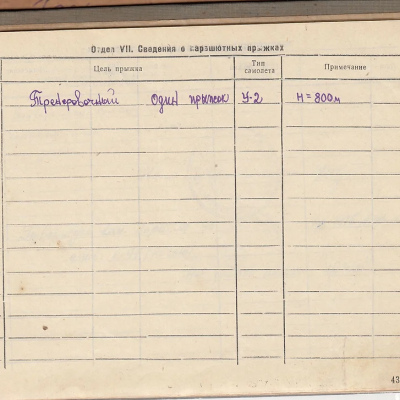 Отдел VII. Сведения о парашютных прыжках
Цель прыжка
Тип самолета
Примечание
Тренировочный один прыжок У-2 H=800м
43